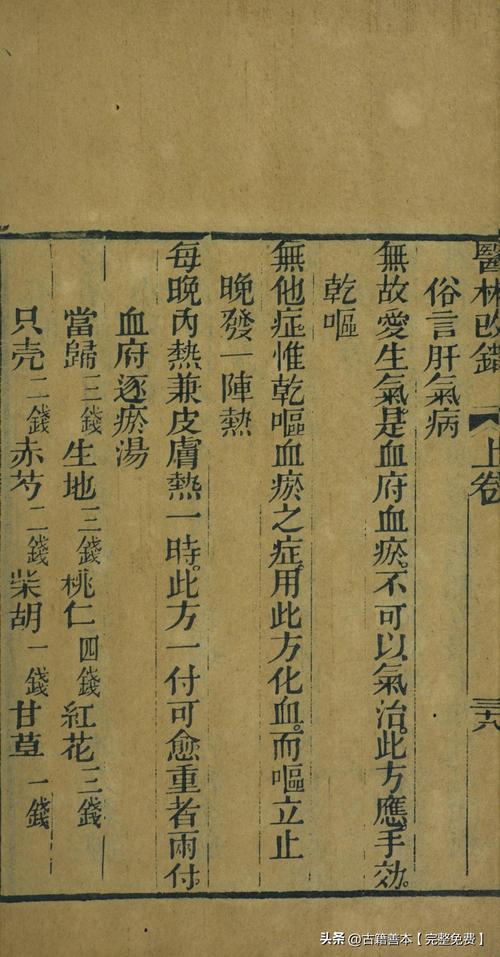 醫林改錯 上卷 三六
俗言肝氣病
無故愛生氣。是血府血瘀。不可以氣治。此方應手効。
乾嘔
無他症惟乾嘔血瘀之症。用此方化血。而嘔立止
晚發一陣熱
每晚內熱兼皮膚熱一時。此方一付可愈重者兩付。
血府逐瘀湯
當歸三錢生地三錢桃仁四錢紅花三錢
只壳二錢赤芍二錢柴胡一錢甘草一錢
头条 @古籍善本【完整免费】